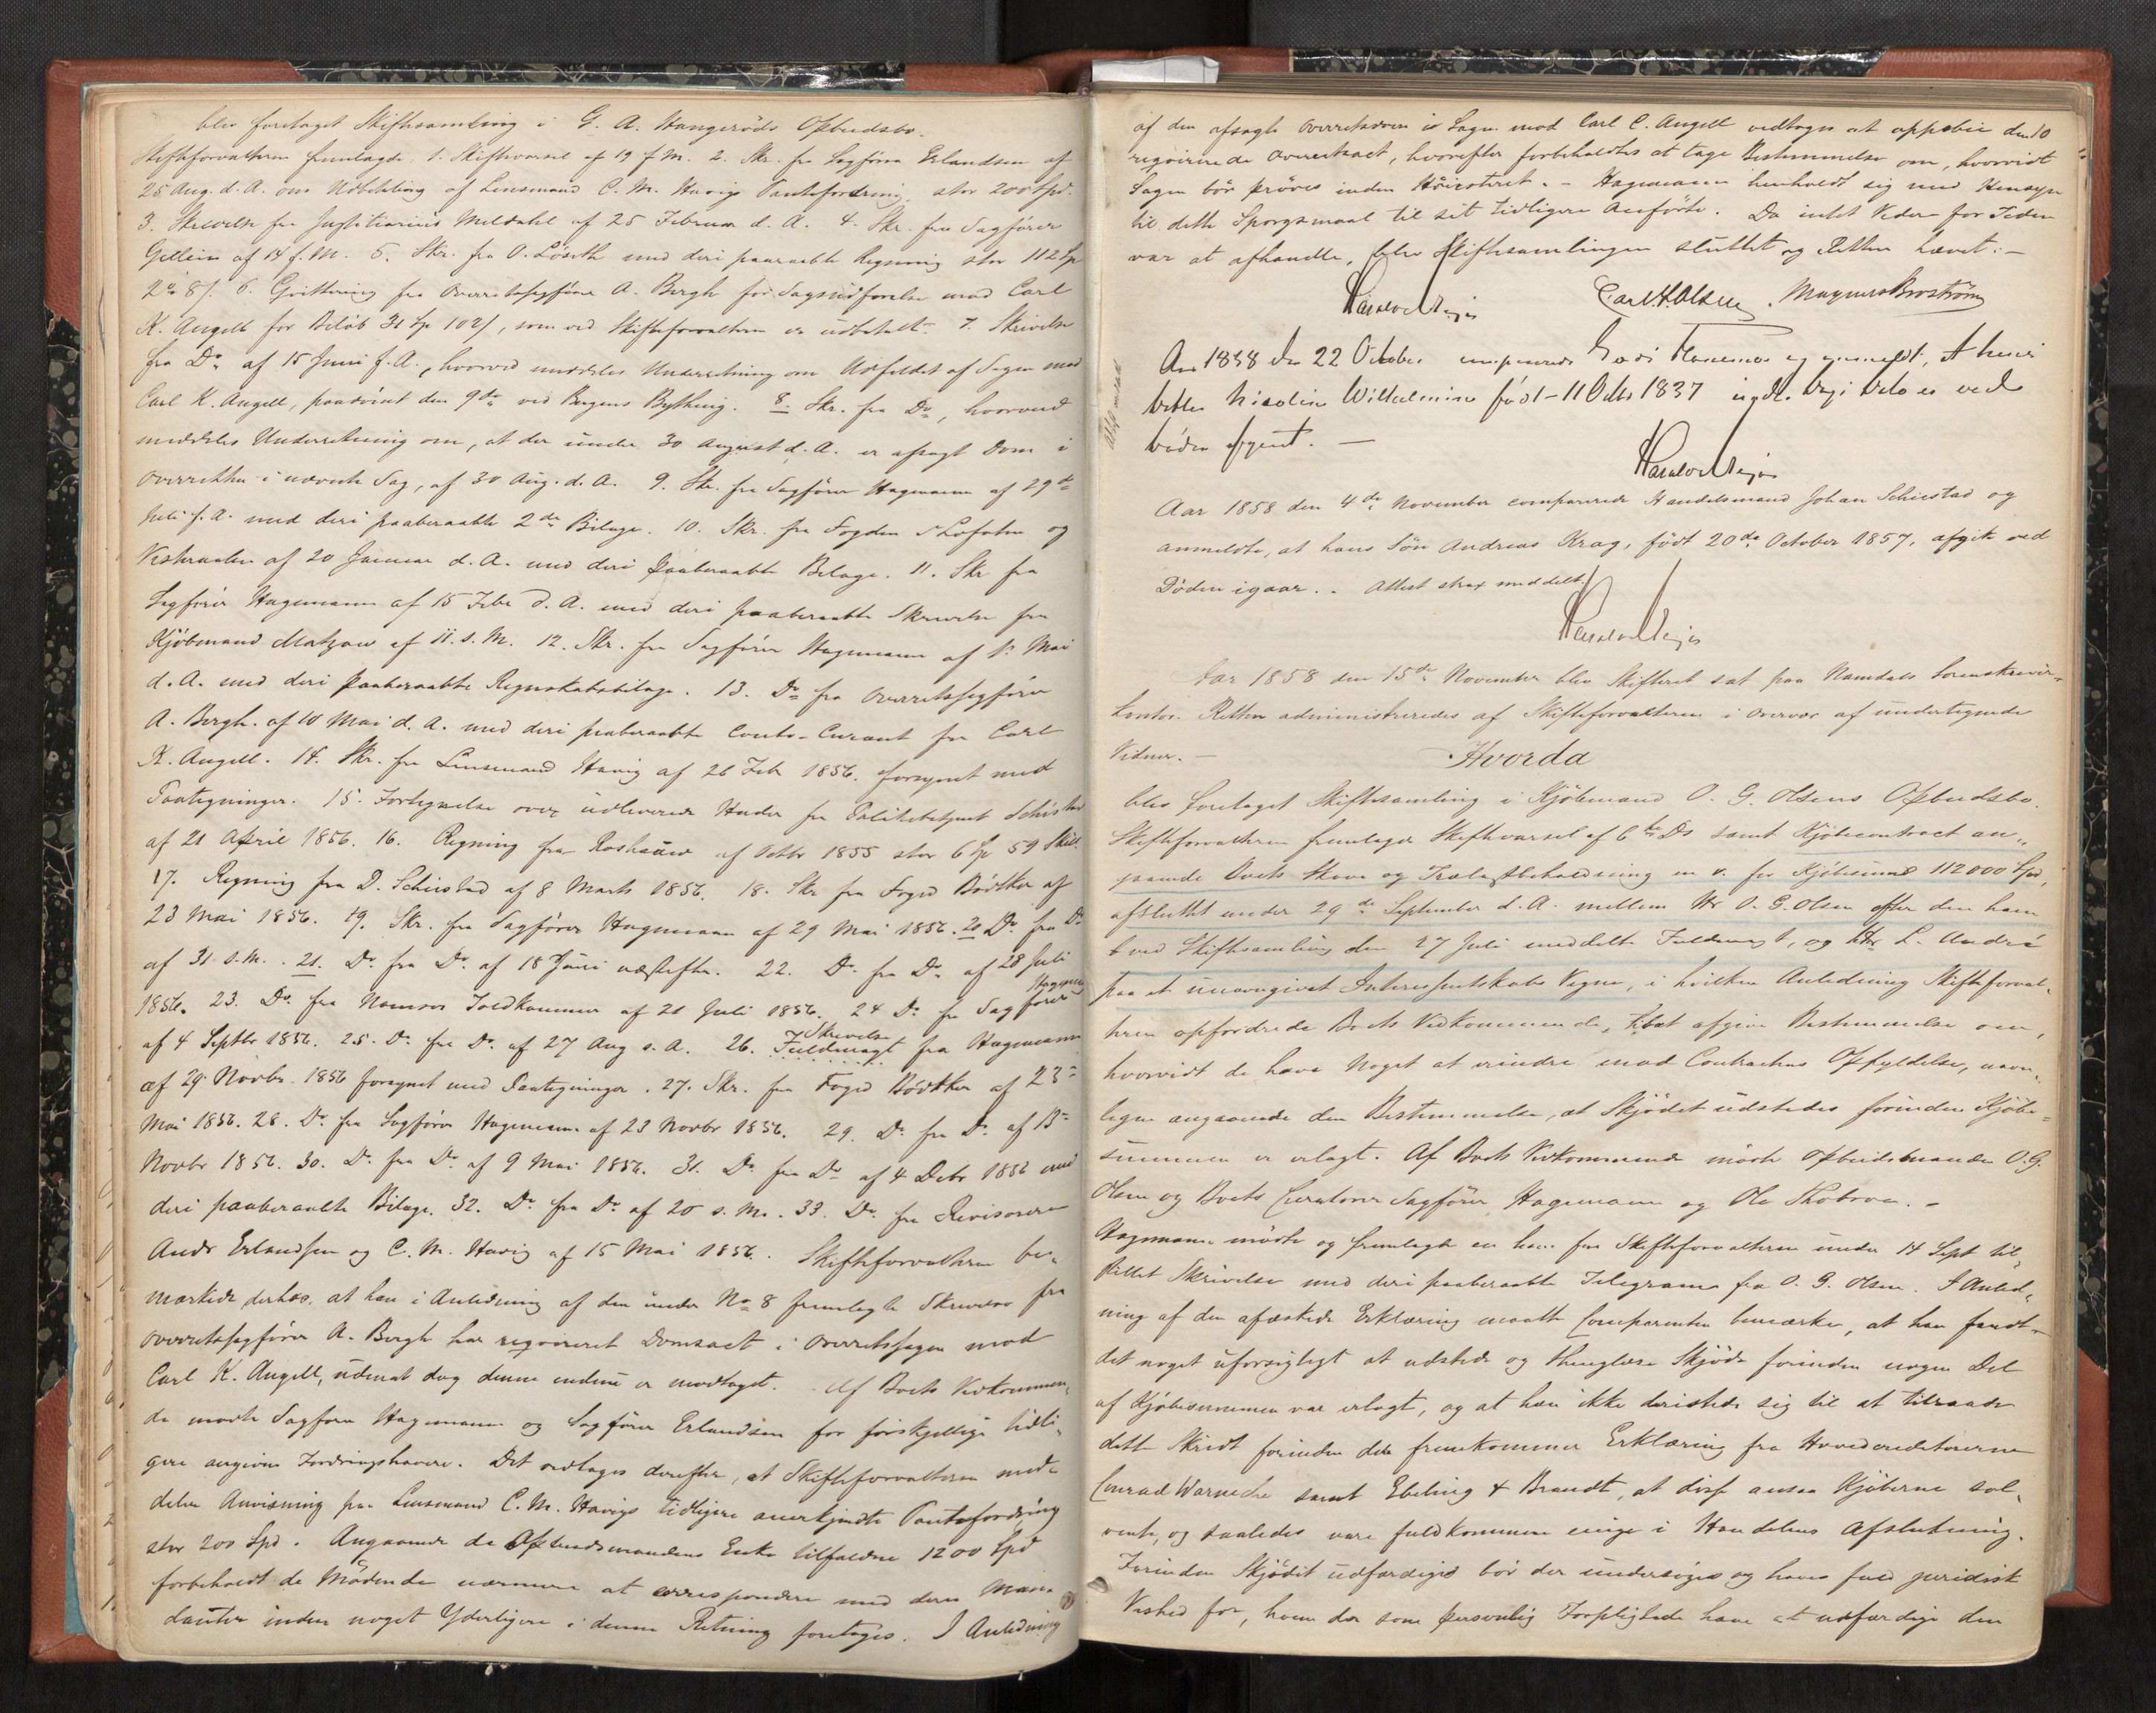 blev foretaget Skiftesamling i G. A. Hangeröds Opbudsbo.
Skifteforvalteren fremlagde 1. Skiftevarsel af 19 f. M. 2. Skr. fra Sagfører Erlandsen af
25 Aug. d. A. om Udbetaling af Lensmand C. M. Havigs Pantefordring, stor 200 Spd.
3. Skrivelse fra Justitiarius Meldahl af 25 Februar d. A. 4. Skr. fra Sagfører
af 14 f. M. 5. Skr. fra O. Löseth med deri paaraabte Regning stor 112 Sp
8 s. 6. Qvittering fra Overretssagfører A. Bergh for Sagsudførelse mod Carl
K. Angell for Beløb 31 Sp 102 s, som ved Skifteforvalteren er udbetalt. 7. Skrivelse
fra Do af 15 Juni f. A., hvorved meddeles Underretning om Udfaldet af Sagen mod
Carl K. Angell, paadömt den 9de ved Bergens Bything. 8. Skr. fra Do, hvorved
meddeles Underretning om, at der under 30 August d. A. er afsagt Dom i
Overretten i nævnte Sag, af 30 Aug. d. A. 9. Skr. fra Sagfører Hagemann af 29de
Juli f. A. med deri paaberaabte 2de Bilage. 10. Skr. fra Fogden i Lofoten og
Vesteraalen af 20 Januar d. A. med deri paaberaabte Bilage. 11. Skr fra
Sagfører Hagemann af 15 Febr d. A. med deri paaberaabte Skrivelse fra
Kjöbmand Matzow af 11. s. M. 12. Skr. fra Sagfører Hagemann af 1. Mai
d. A. med deri paaberaabte Regnskabsbilage. 13. Do fra Overretssagfører
A. Bergh. af 10 Mai d. A. med deri paaberaabte Conto-Curant fra Carl
K. Angell. 14. Skr. fra Lensmand Havig af 26 Feb 1856. forsynet med
Paategninger. 15. Fortegnelse over udleverede Huder fra Politibetjent Schiestad
af 21 April 1856. 16. Regning fra af Octbr 1855 stor 6 Sp 59 Skill.
17. Regning fra D. Schiestad af 8 Marts 1856. 18. Skr fra Foged Bödtker af
23 Mai 1856. 19. Skr. fra Sagfører Hagemann af 29 Mai 1856. 20 Do fra Do
af 31 s. M. 21. Do fra Do af 18 Juni næstefter. 22. Do fra Do af 28 Juli
1856. 23. Do fra Namsos Toldkammer af 21 Juli 1856. 24 Do fra Sagfører Hagemann
af 4 Septbr 1856. 25. Do fra Do af 27 Aug s. A. 26. Fuldmagt Skrivelse fra Hagemann
af 29 Novbr. 1856 forsynet med Paategninger. 27. Skr. fra Foged Bödtker af 23
Mai 1856. 28. Do fra Sagfører Hagemann af 23 Novbr 1856. 29. Do fra Do af 15
Novbr 1856. 30. Do fra Do af 9 Mai 1856. 31. Do fra Do af 4 Debr 1856 med
deri paaberaabte Bilage. 32. Do fra Do af 20 s. M. 33. Do fra Revisorerne
Andr Erlandsen og C. M. Havig af 15 Mai 1856. Skifteforvalteren be-
mærkede derhos, at han i Anledning af den under No 8 fremlagte Skrivelse fra
Overretssagfører A. Bergh har reqvireret Domsact i Overretssagen mod
Carl K. Angell, uden at dog denne endnu er modtaget. Af Boets Vedkommen-
de mødte Sagfører Hagemann og Sagfører Erlandsen for forskjellige tidli-
gere angivne Fordringshavere. Det vedtages derefter, at Skifteforvalteren med-
deler Anvisning paa Lensmand C. M. Havigs tidligere anerkjendte Pantefordring
stor 200 Spd. Angaaende de Opbudsmandens Enke tilfaldne 1200 Spd
forbeholdt de Mödende nærmere at correspondere med deres Man-
danter inden noget Yderligere i denne Retning foretages. I Anledning
af den afsagte Overretsdom i Sagen mod Carl C. Angell vedtoges at oppebie den
reqvirerede Overretsact, hvorefter forbeholdtes at tage Bestemmelse om, hvorvidt
Sagen bör prøves inden Höiesteret. - Hagemann henholdt sig med Hensyn
til dette Spørgsmaal til sit tidligere Anförte. Da intet Videre for Tiden
var at afhandle, blev Skiftesamlingen sluttet og Retten hævet. -
Carl H Olsen. Magnus Broström
Aar 1858 den 22 October og anmeldte, at hans
Datter Nicoline Wilhelmine född 11 Octbr 1837 ved
Döden afgaaet. -
Aar 1858 den 4de November comparerede Handelsmand Johan Schiestad og
anmeldte, at hans Sön Andreas Krag, födt 20de October 1857, afgik ved
Döden igaar. . Attest strax meddelt.
Aar 1858 den 15de November blev Skifteret sat paa Namdals Sorenskriver-
kontor. Retten administreredes af Skifteforvalteren i Overvær af undertegnede
Vidner. - Hvorda
blev foretaget Skiftesamling i Kjöbmand O. G. Olsens Opbudsbo.
Skifteforvalteren fremlagde Skiftevarsel af 6te Ds samt Kjöbecontract an-
gaaende Boets Skove og Trælastbeholdning m. v. for Kjöbesum 112000 Spd,
afsluttet under 29de September d. A. mellem Hr O. G. Olsen efter den ham
ved Skiftesamling den 27 Juli meddelte Fuldmagt, og Hr L. André
paa et unavngivet Interessentskabs Vegne, i hvilken Anledning Skifteforval-
teren opfordrede Boets Vedkommende, til at afgive Bestemmelse om,
hvorvidt de have Noget at erindre mod Contractens Opfyldelse, navn-
ligen angaaende den Bestemmelse, at Skjödet udstedes forinden Kjöbe-
summen er erlagt. Af Boets Vedkommende mödte Opbudsmanden O. G.
Olsen og Boets Curatorer Sagfører Hagemann og Ole Thobroe. -
Hagemann mödte og fremlagde en ham fra Skifteforvalteren under 14 Sept til-
stillet Skrivelse med deri paaberaabte Telegram fra O. G. Olsen. I Anled-
ning af den afæskede Erklæring maatte Comparenten bemærke, at han fandt
det noget uforsigtigt at udstede og thinglæse Skjöde forinden nogen Del
af Kjöbesummen var erlagt, og at han ikke dristede sig til at tilraade
dette Skridt forinden der fremkommer Erklæring fra Hovedcreditorerne
Conrad Warnecke samt Ebeling & Brandt, at disse ansaa Kjöberne sol-
vente, og saaledes vare fuldkommen enige i Handelens Afslutning.
Forinden Skjödet udfærdiges bör der undersöges og haves fuld juridisk
Vished for, hvem der som personlig Forpligtede have at udfærdige den